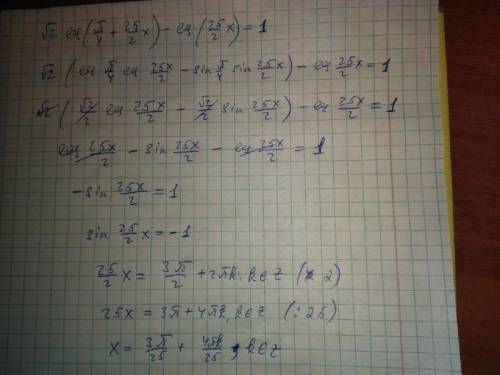 √2 cos(π/4 + 25/2 x) - cos(25/2 x) = 1
√2 (cos π/4 cos 25x/2 - sin π/4 sin 25x/2) - cos 25x/2 = 1
√2 (√2/2 cos 25x/2 - √2/2 sin 25x/2) - cos 25x/2 = 1
cos 25x/2 - sin 25x/2 - cos 25x/2 = 1
-sin 25x/2 = 1
sin 25/2 x = -1
25/2 x = 3π/2 + 2πk, k∈Z (× 2)
25x = 3π + 4πk, k∈Z (: 25)
x = 3π/25 + 4πk/25, k∈Z